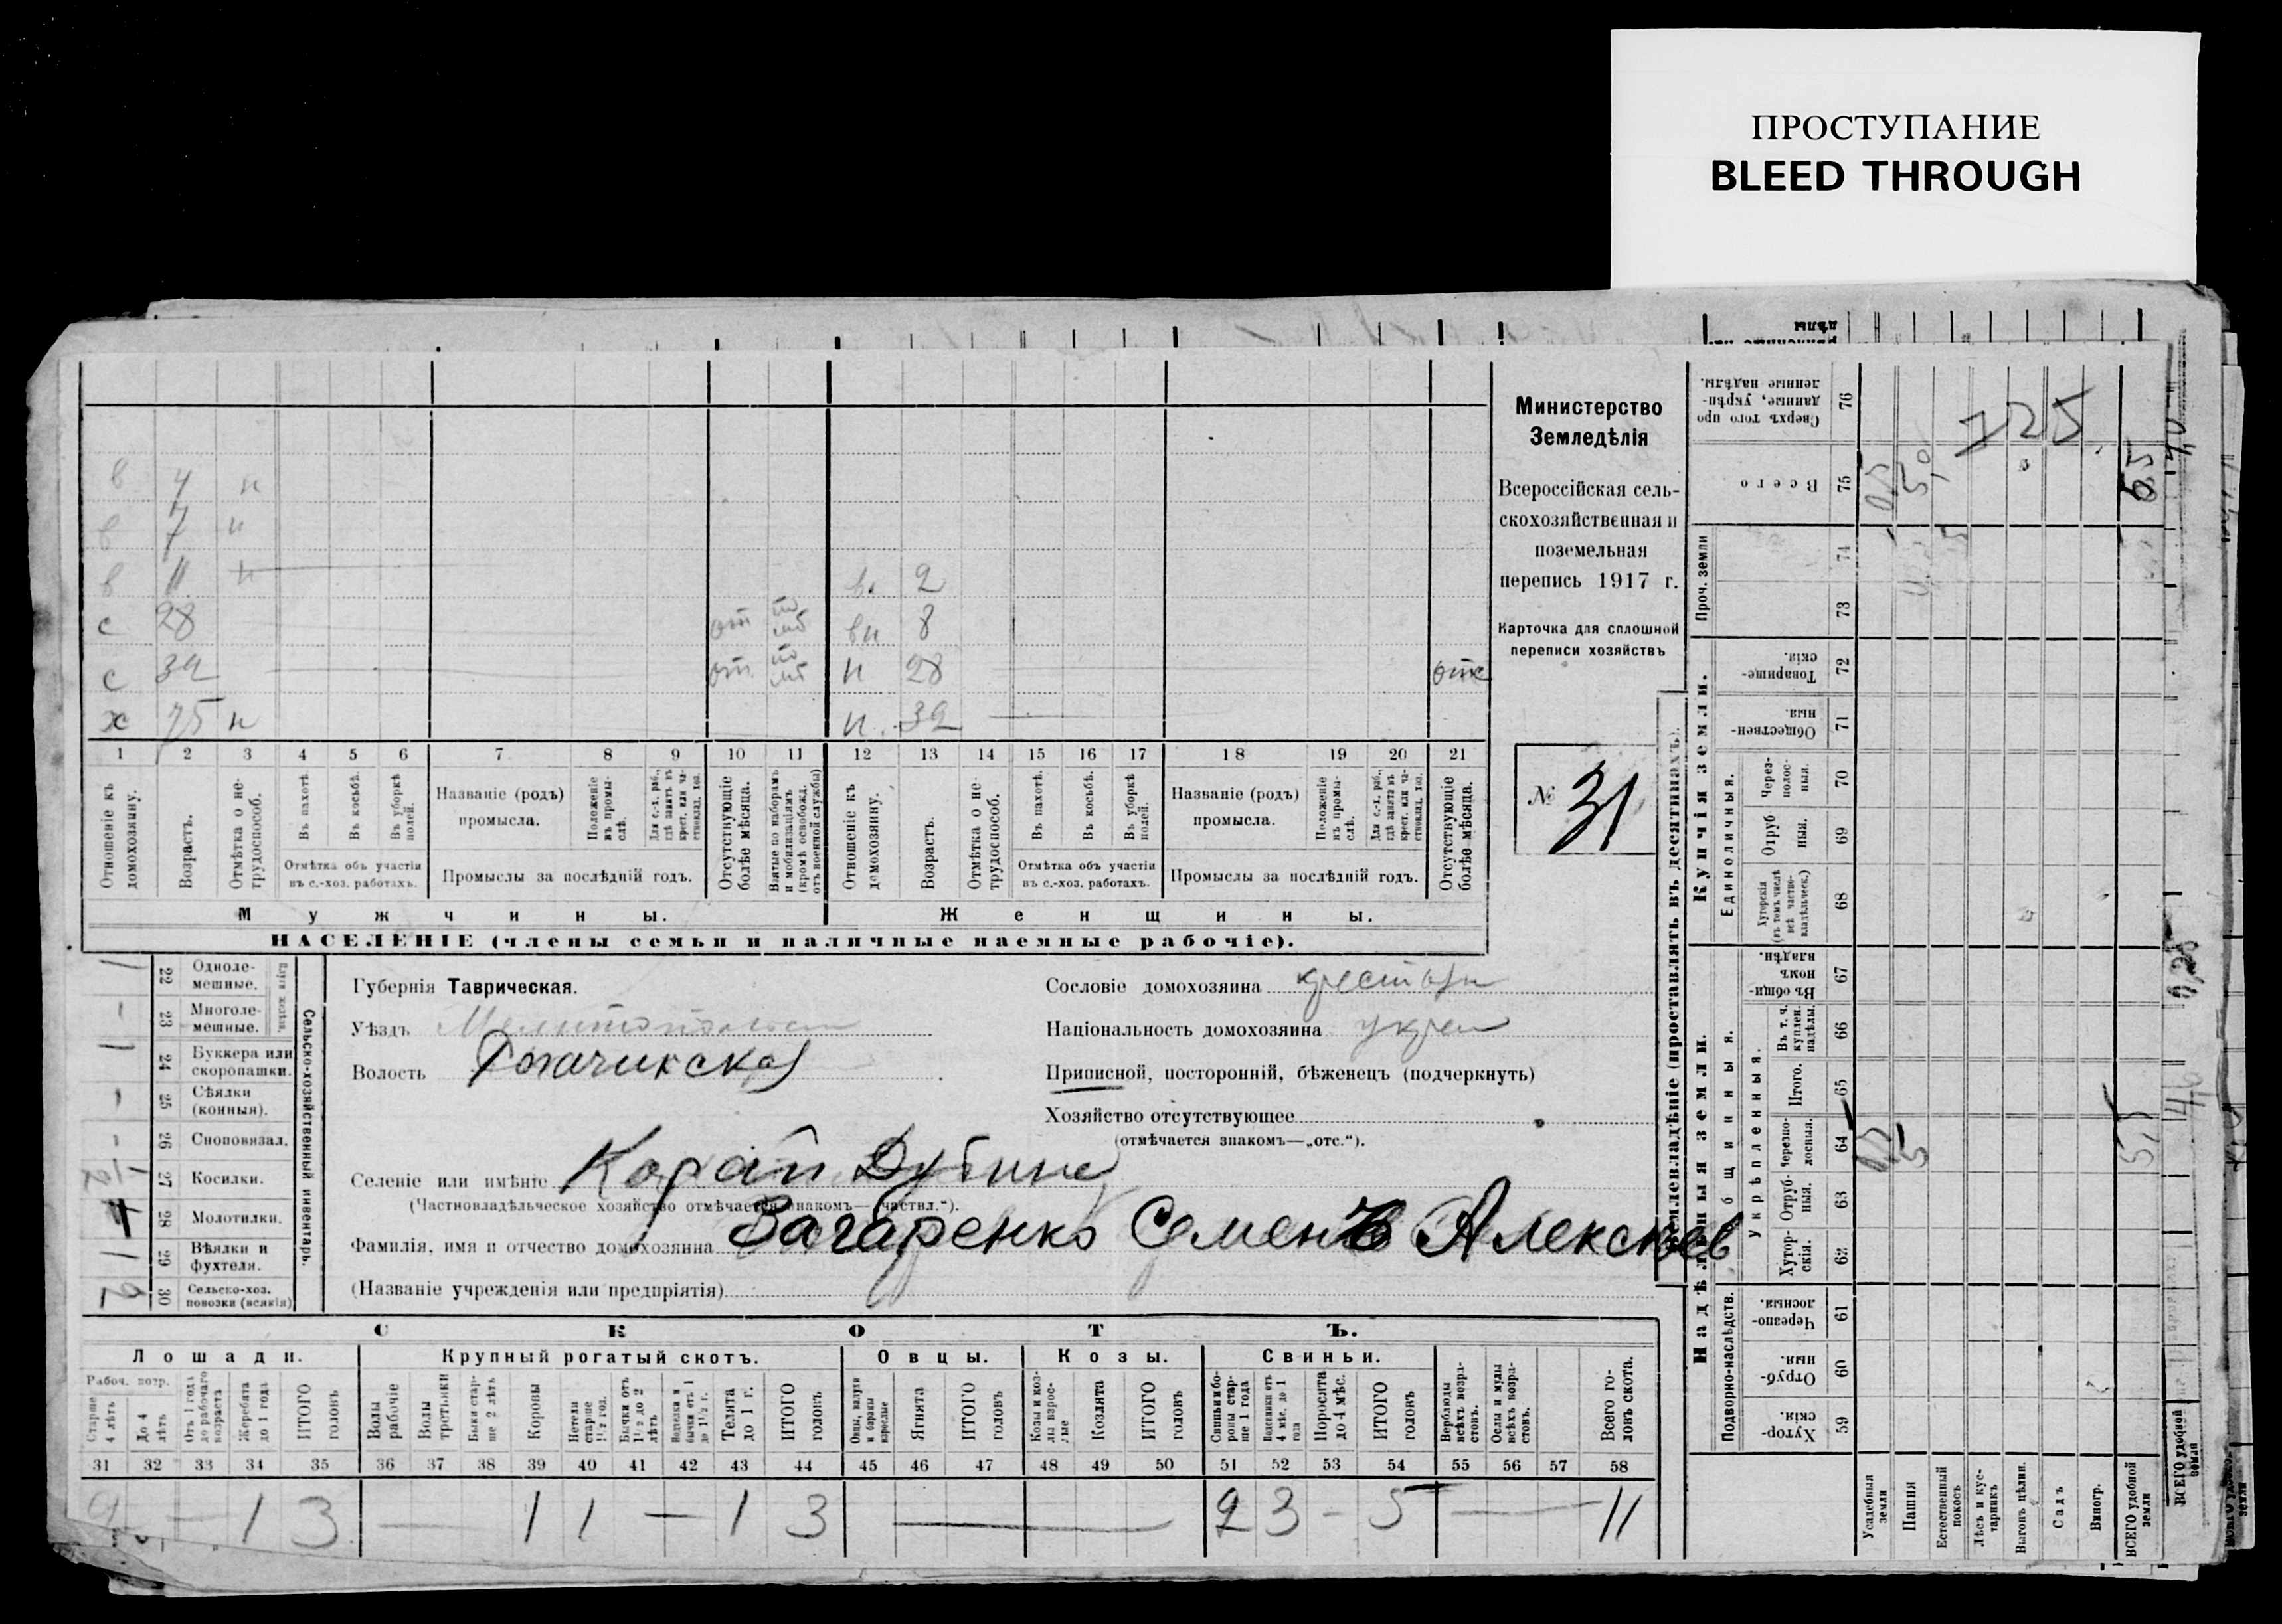 ПРОСТУПАНИЕ
BLEED THROUGH
Министерство
Земледѣлія
Всероссійская сель-
скохозяйственная и
поземельная
перепись 1917 г.
Карточка для сплошной
переписи хозяйствъ
№ 31
в 4 н
в 7 н
в 11 н
в. 2
с 28
8
с 32
н 28
отс
х 75 н
н. 32
1 2 3 4 5 6 7 8 9 10 11 12 13 14 15 16 17 18 19 20 21
Отношеніе къ домохозяину.
Возрастъ.
Отмѣтка о не-трудоспособ.
Въ пахотѣ.
Въ косьбѣ.
Въ уборкѣ полей.
Отмѣтка объ участіи
въ с.-хоз. работахъ.
Названіе (родъ)
промысла.
Положеніе въ промы-слѣ.
Для с.-х. раб., гдѣ занятъ въ крест. или ча-стновлад. хоз.
Промыслы за послѣдній годъ.
Отсутствующіе болѣе мѣсяца.
Взятые по наборамъ и мобилизаціямъ (кромѣ освобожд. отъ военной службы)
Отношеніе къ домохозяину.
Возрастъ.
Отмѣтка о не-трудоспособ.
Въ пахотѣ.
Въ косьбѣ.
Въ уборкѣ полей.
Отмѣтка объ участіи
въ с.-хоз. работахъ.
Названіе (родъ)
промысла.
Положеніе въ промы-слѣ.
Для с.-х. раб., гдѣ занята въ крест. или ча-стновлад. хоз.
Промыслы за послѣдній годъ.
Отсутствующіе болѣе мѣсяца.
Мужчины.
Женщины.
НАСЕЛЕНІЕ (члены семьи и наличные наемные рабочіе).
Сельско-хозяйственный инвентарь.
22 Одноле-мешные.
23 Многоле-мешные.
24 Буккера или скоропашки.
25 Сѣялки (конныя).
26 Сноповязал.
27 Косилки.
28 Молотилки.
29 Вѣялки и фухтеля.
30 Сельско-хоз. повозки (всякія)
Губернія Таврическая.
Уѣздъ
Волость Рогачикская
Сословіе домохозяина
Національность домохозяина
Приписной, посторонній, бѣженецъ (подчеркнуть)
Хозяйство отсутствующее
(отмѣчается знакомъ—„отс.“).
Селеніе или имѣніе Карай Дубина
(Частновладѣльческое хозяйство отмѣчается знакомъ—„частвл.“).
Фамилія, имя и отчество домохозяина Загаренко Семенъ Алексѣев
(Названіе учрежденія или предпріятія)
СКОТЪ.
Лошади. Крупный рогатый скотъ. Овцы. Козы. Свиньи.
Рабоч. возр.
Старше 4 лѣтъ
До 4 лѣтъ
Отъ 1 года до рабочаго возраста
Жеребята до 1 года
ИТОГО головъ
Волы рабочіе
Волы третьяки
Быки стар-ше 2 лѣтъ
Коровы
Нетели старше 1½ год.
Бычки отъ 1½ до 2 лѣтъ
Телята до 1 г.
ИТОГО головъ
Овцы, валухи и бараны взрослые
Ягнята
ИТОГО головъ
Козы и коз-лы взрос-лые
Козлята
ИТОГО головъ
Свиньи и бо-ровы стар-ше 1 года
Поросята до 4 мѣс.
ИТОГО головъ
Верблюды всѣхъ возра-стовъ.
Ослы и мулы всѣхъ возра-стовъ.
Всего го-ловъ скота.
31 32 33 34 35 36 37 38 39 40 41 42 43 44 45 46 47 48 49 50 51 52 53 54 55 56 57 58
2 — 1 3 — 1 1 — 1 3 — 2 3 - 5 — 11
Землевладѣніе (проставлять въ десятинахъ).
Надѣльныя земли.
Купчія земли.
Проч. земли
Подворно-наслѣдств.
Общинныя.
Укрѣпленныя.
Единоличныя.
Сверхъ того про данные, укрѣп-ленные надѣлы. 76
Всего 75
74
73
Товарище-скія. 72
Обществен-ныя. 71
Через-полос-ныя. 70
Отруб ныя. 69
Хуторскія (въ томъ числѣ всѣ частно-владѣльческ.) 68
Въ общи-номъ владѣн. 67
Въ т. ч. куплен. надѣлы. 66
Итого. 65
Черезпо-лосныя. 64
Отруб-ныя. 63
Хутор-скія. 62
Черезпо-лосныя. 61
Отруб-ныя. 60
Хутор-скія. 59
Усадебныя земли
Пашня
Естественный покосъ
Лѣсъ и кус-тарникъ
Выгонъ цѣлин.
Садъ
Виногр.
ВСЕГО удобной земли
ВСЕГО удобной земли
125